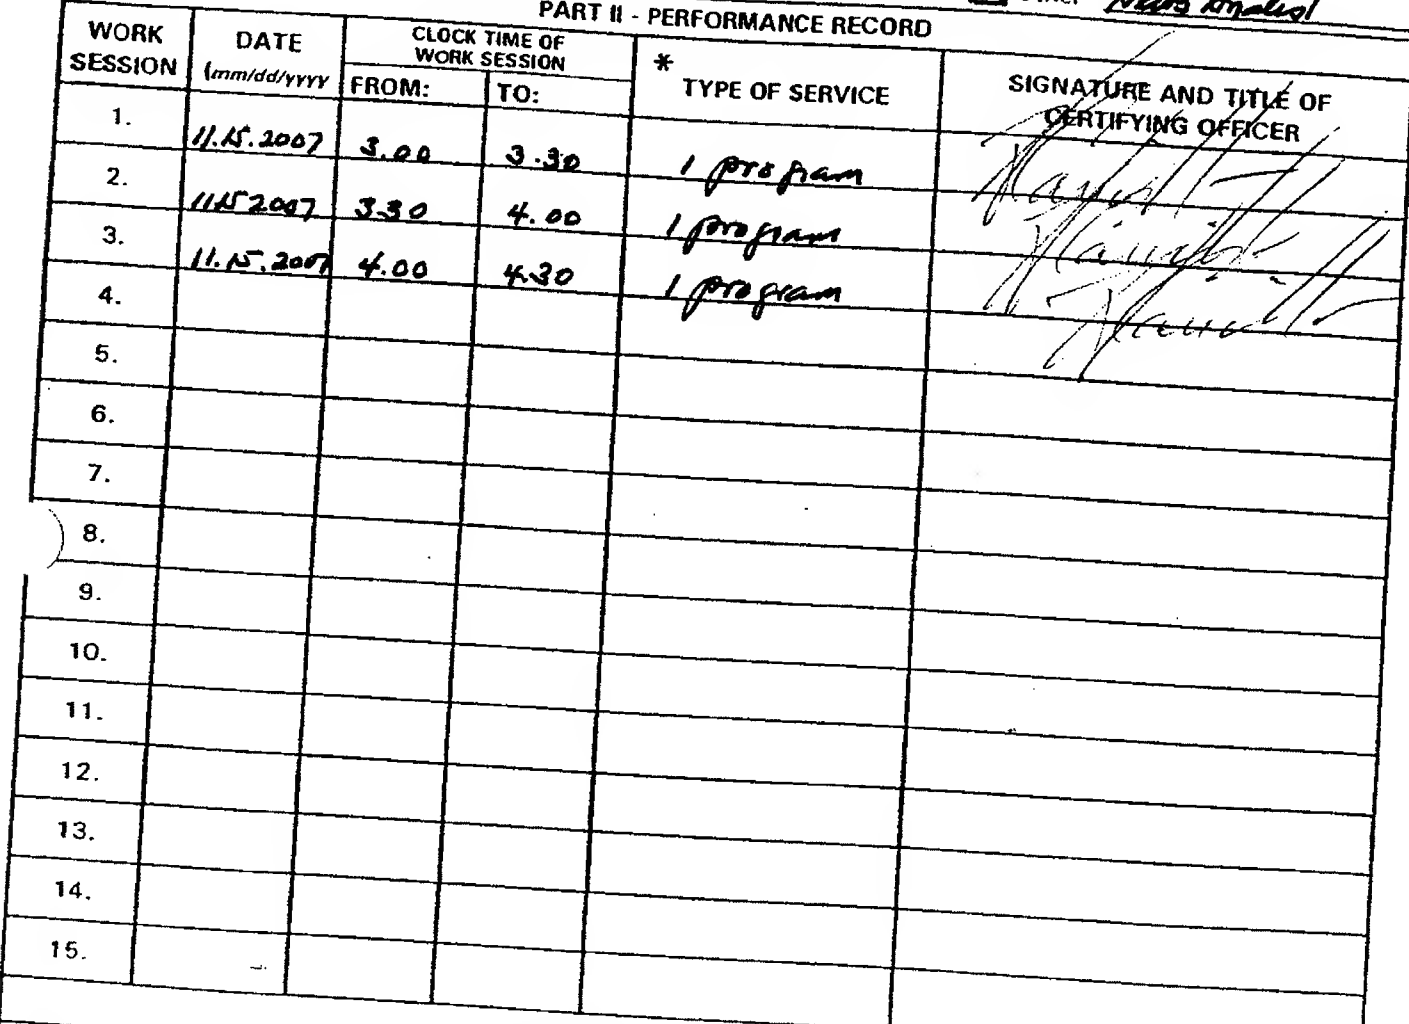 News Analyst
PART II - PERFORMANCE RECORD
WORK SESSION
DATE (mm/dd/yyyy
CLOCK TIME OF WORK SESSION
FROM:
TO:
* TYPE OF SERVICE
SIGNATURE AND TITLE OF CERTIFYING OFFICER
1. 11.15.2007 3.00 3.30 1 program
2. 11.15 2007 3.30 4.00 1 program
3. 11.15.2007 4.00 4.30 1 program
4.
5.
6.
7.
8.
9.
10.
11.
12.
13.
14.
15.